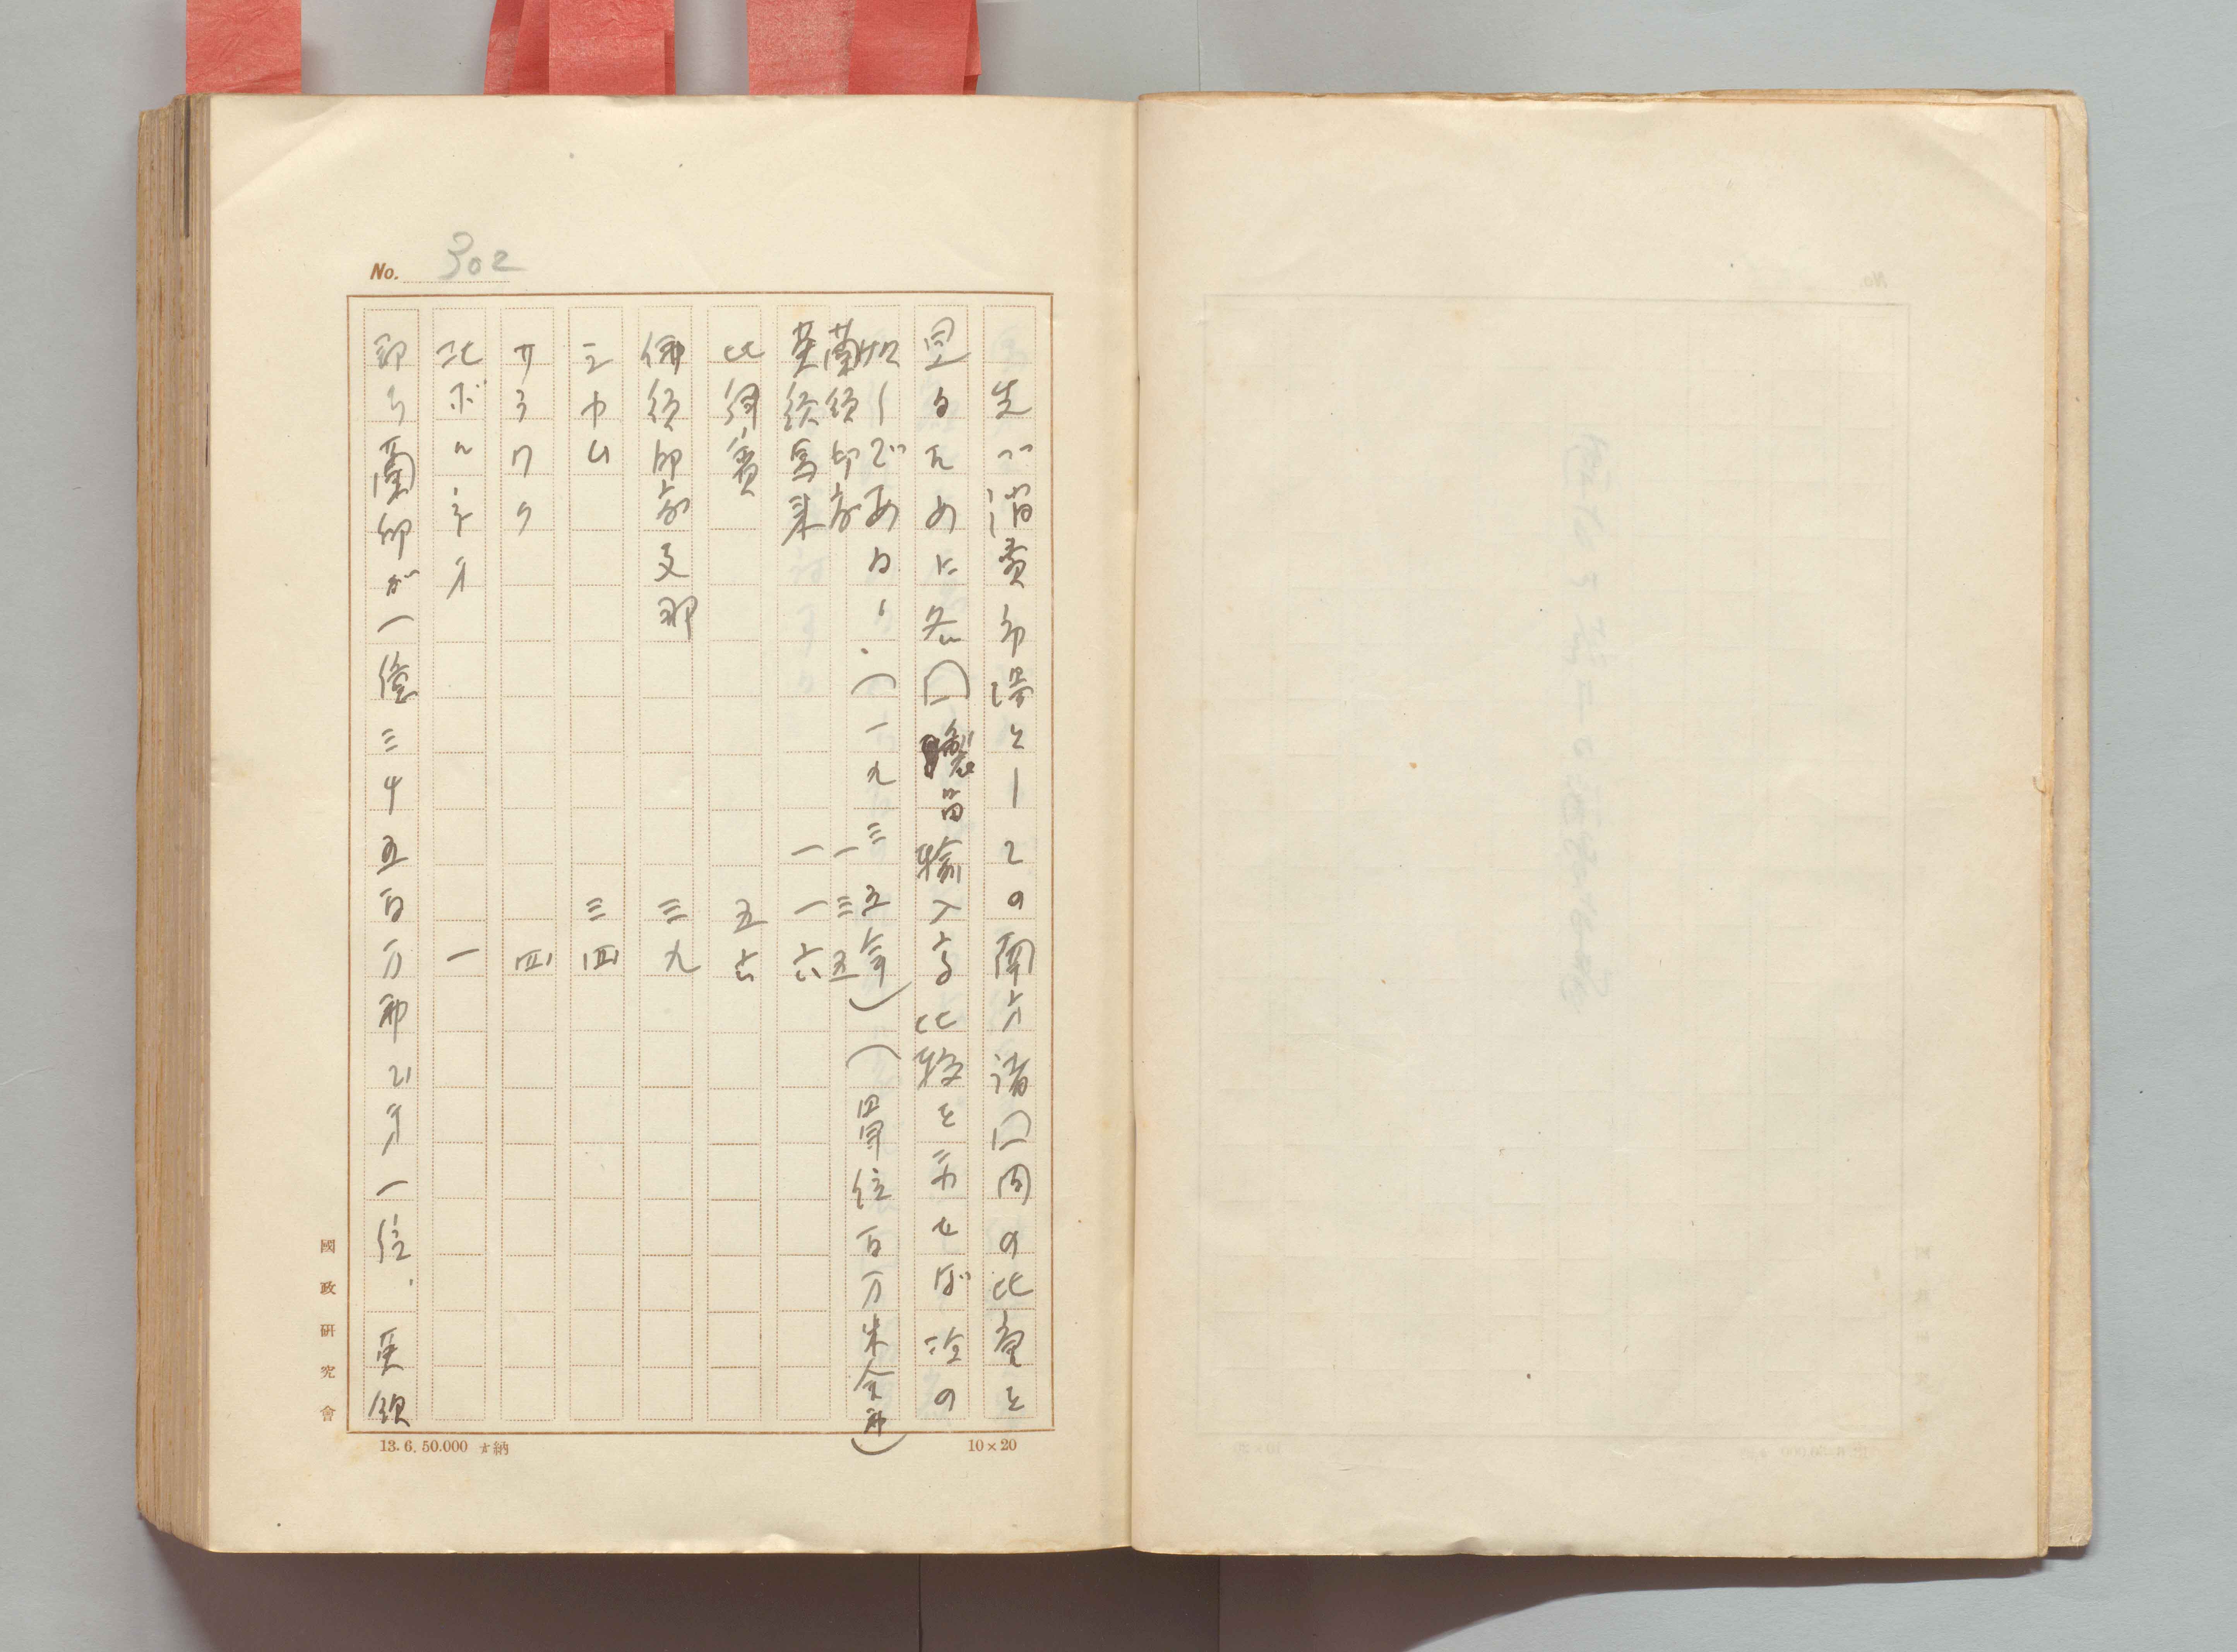 No. 302
先づ消費市場としての南方諸国間の比重を
見るために各国製品輸入高比較を示せば次の
如しである。(一九三五年)(単位百万米金弗)
蘭領印度 一三五
英領馬来 一一六
比律賓 五六
佛領印度支那 三九
シャム 三四
サラワク 四
北ボルネオ 一
即ち蘭印が一億三千五百万弗で第一位、英領
國政研究會
13.6.50.000 納
10×20